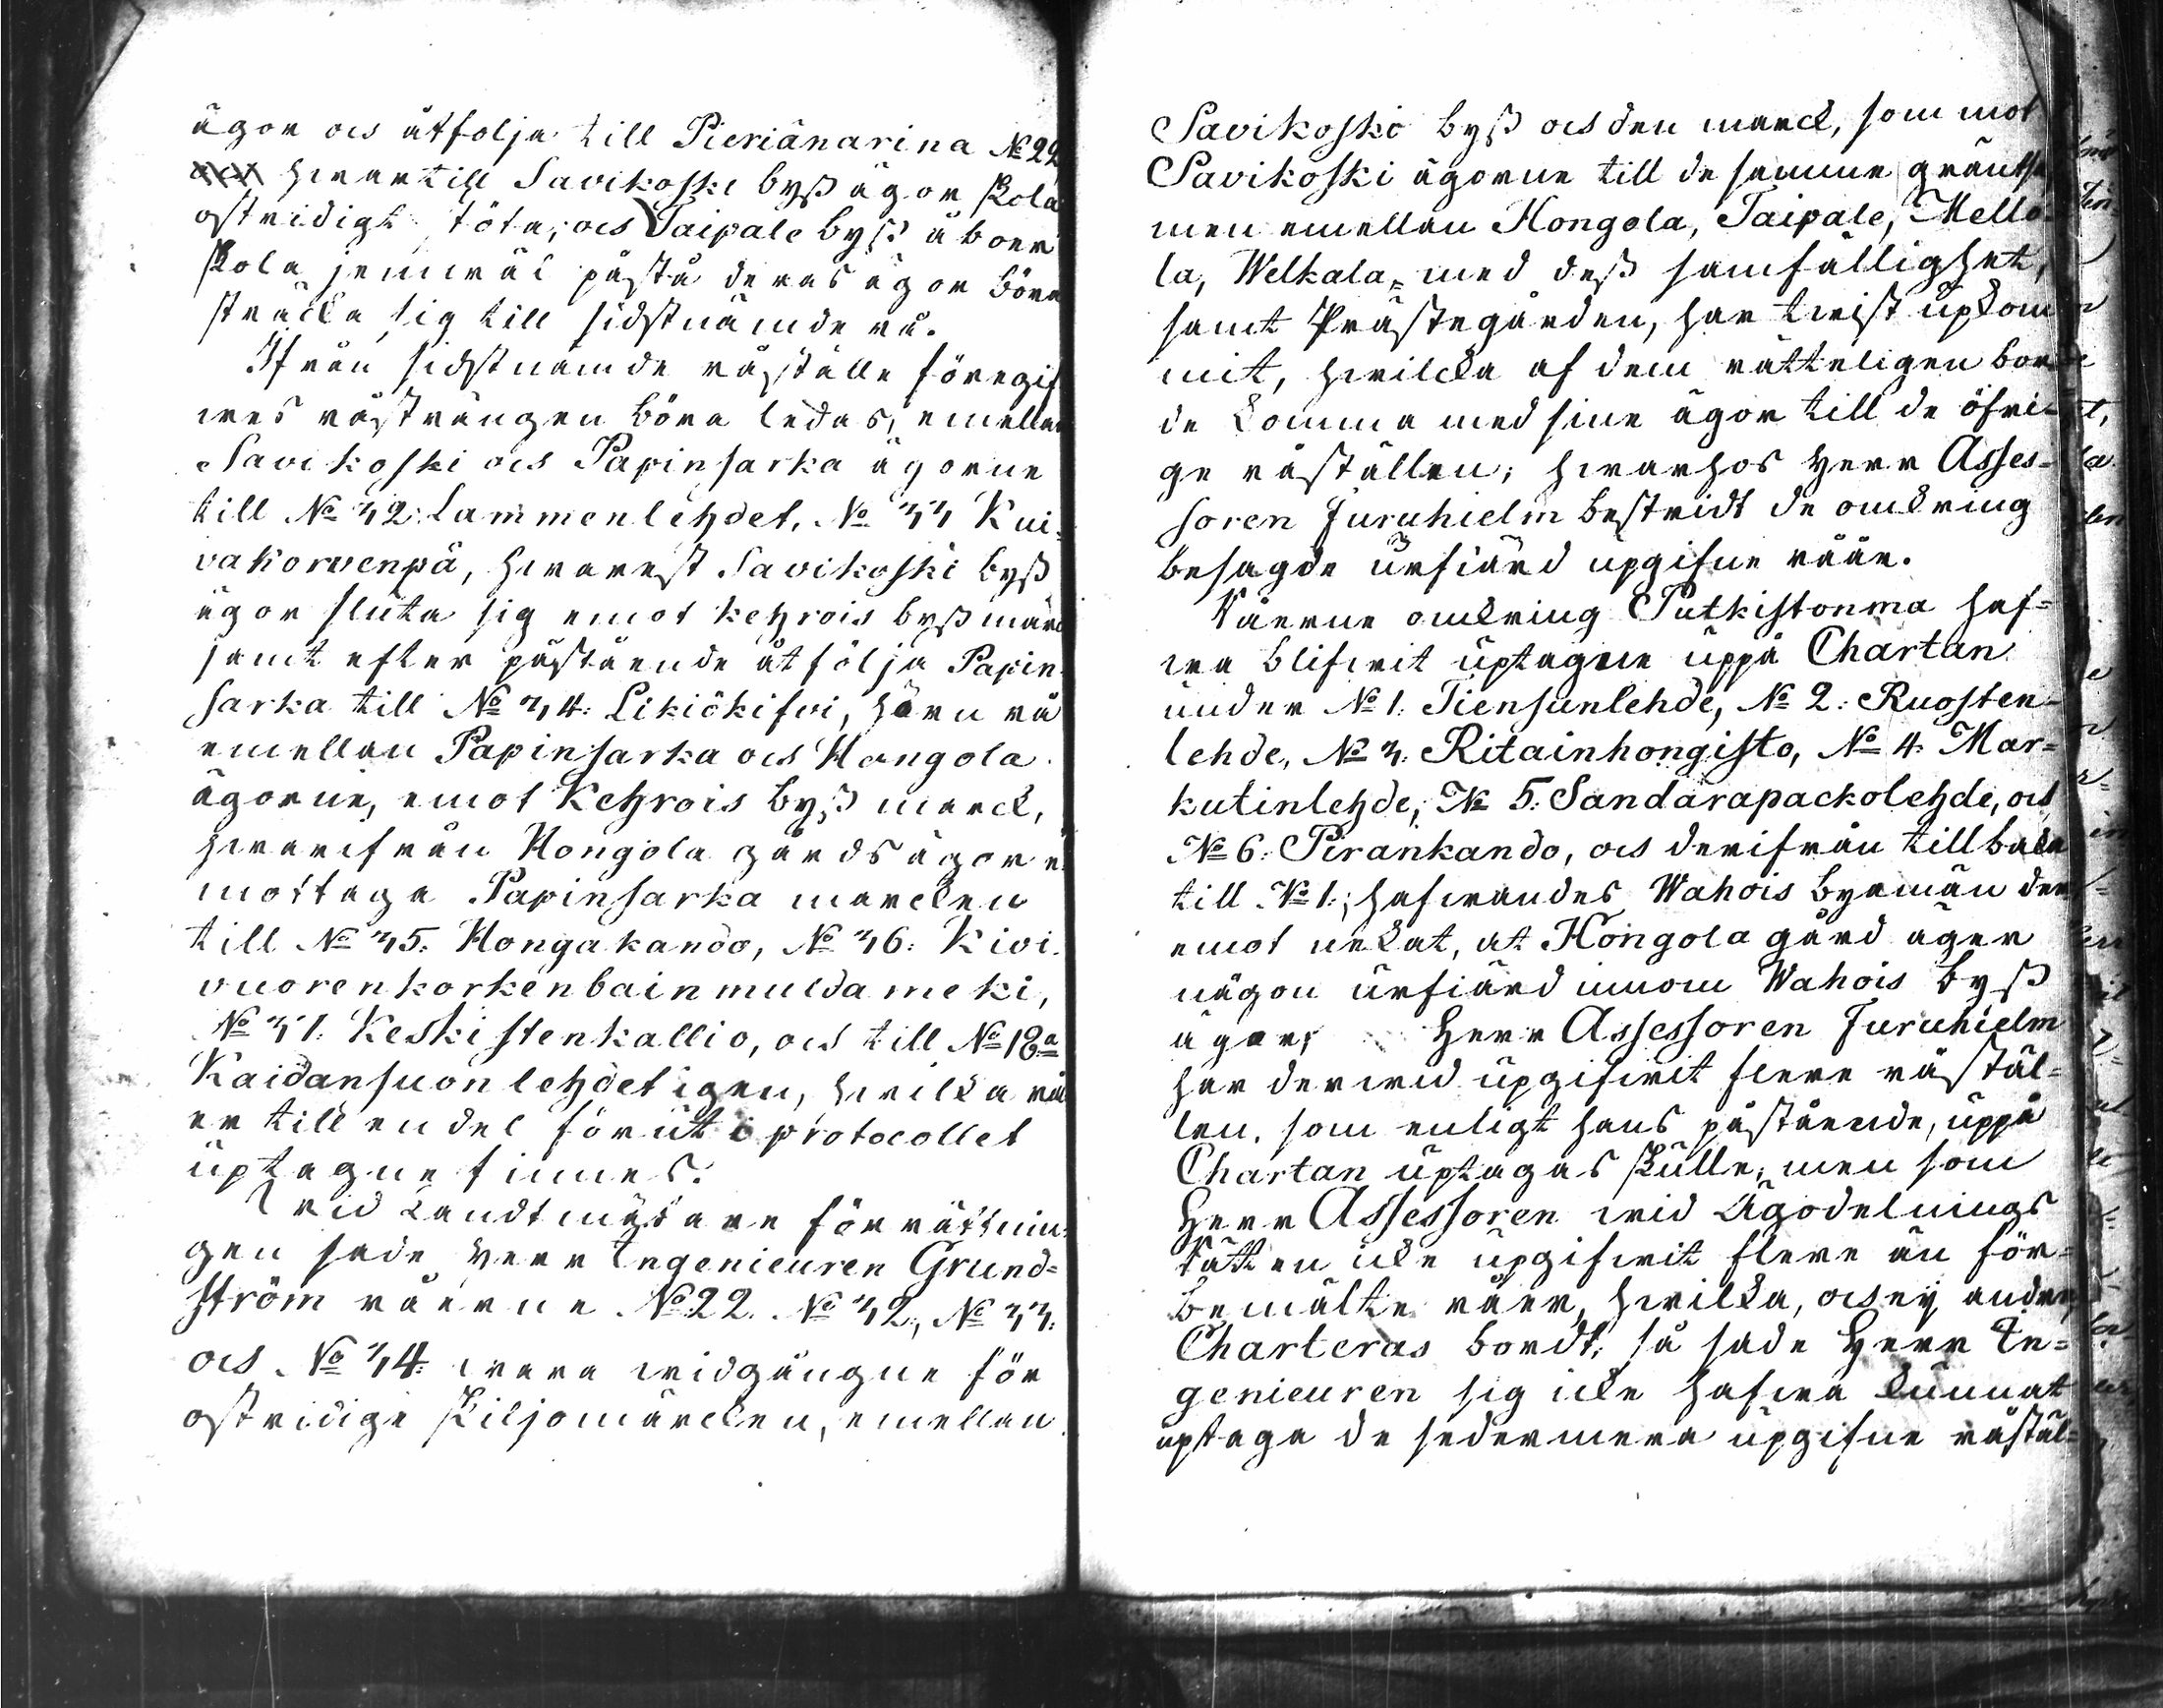 ägor och åtfölja till Pieriänarina № 22
hwartill Savikoski byß ägor skola
ostridigt stöta; och Taipale byß åboer
skola jemwäl påstå deras ägor böra
sträcka sig till sidstnämde rå.
Ifrån sidstnämde råställe föregif
wes råsträngen böra ledas, emellan
Savikoski och Papinsarka ägorne
till № 32: Lammenlehdet, № 33 Kui-
vakorvenpä, hwarest Savikoski byß
ägor sluta sig emot Kehrois byß marck
samt efter påstående åtfölja Papin-
sarka till № 34: Likiökifvi, hörn rå
emellan Papinsarka och Hongola
ägorne, emot Kehrois byß marck,
hwarifrån Hongola gårds ägor e
mottaga Papinsarka marcken
till № 35: Hongakando, № 36: Kivi-
vuorenkorkenbainmuldameki,
№ 31: Keskistenkallio, och till № 18a
Kaidansuonlehdet igen, hwilka rå
er till en del förut i protocollet
uptagne finnes.
Wid Landtmätare förrättnin-
gen sade Herr Ingenieuren Grund=
ström råerne № 22. № 32:, № 33:
och № 34: wara widgångne för
ostridige skiljomärcken, emellan
Savikoski byß och den marck, som mot
Savikoski ägorne till de samme gräntsa
men emellan Hongola, Taipale, Mello-
la, Welkala, med deß samfällighet,
samt Prästegården, har twist upkom
mit, hwilcka af dem rätteligen bor
de komma med sine ägor till de öfri-
ge råställen; hwarhos Herr Asses=
soren Furuhielm bestridt de omkring
besagde urfiärd upgifne råår.
Råerne omkring Putkistonma haf=
wa blifwit uptagne uppå Chartan
under № 1: Tiensunlehde, № 2: Ruosten-
lehde, № 3: Ritainhongisto, № 4: Mar=
kutinlehde, № 5: Sandarapackolehde, och
№ 6: Pirankando, och derifrån tillbaka
till № 1:; hafwandes Wahois byamän der
emot nekat, at Hongola gård äger
någon urfiärd innom Wahois byß
ägor; Herr Assessoren Furuhielm
har derwid upgifwit flere råstäl=
len, som enligt hans påstående, uppå
Chartan uptagas skulle; men som
Herr Assessoren wid Ägodelnings
Rätten icke upgifwit flere än för=
bemälte råer, hwilka, och ej andre,
Charteras bordt; så sade Herr In=
genieuren sig icke hafwa kunnat
uptaga de sedermera upgifne råstäl=